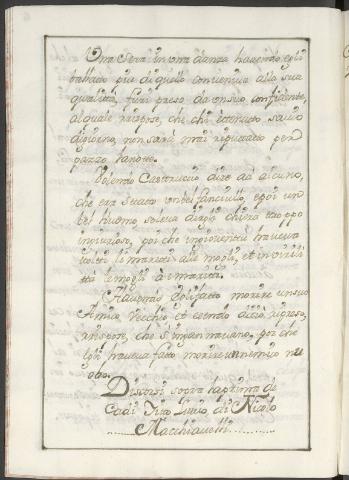 Una sera in una danza havendo egli
ballato piu di quello conveniva alla sua
qualità, fu ripreso da un suo confidente,
al quale rispose, che chi è tenuto savio
di giorno, non sarà mai reputato per
pazzo la notte.
Volendo Castruccio dire ad alcuno,
che era stato un bel fanciullo, e poi un
bel huomo, soleva dirgli ch'era troppo
ingiurioso, poi che in gioventù haveva
tolti li mariti alle mogli, et in virili
tà le mogli à i mariti.
Havendo egli fatto morire un suo
Amico Vecchio et essendo di ciò ripreso,
rispose, che s'ingannavano, perche
egli haveva fatto morire un nemico nu
ovo.
Discorsi sopra la prima de
cadi Tito Livio, di Nicolo
Macchiavelli